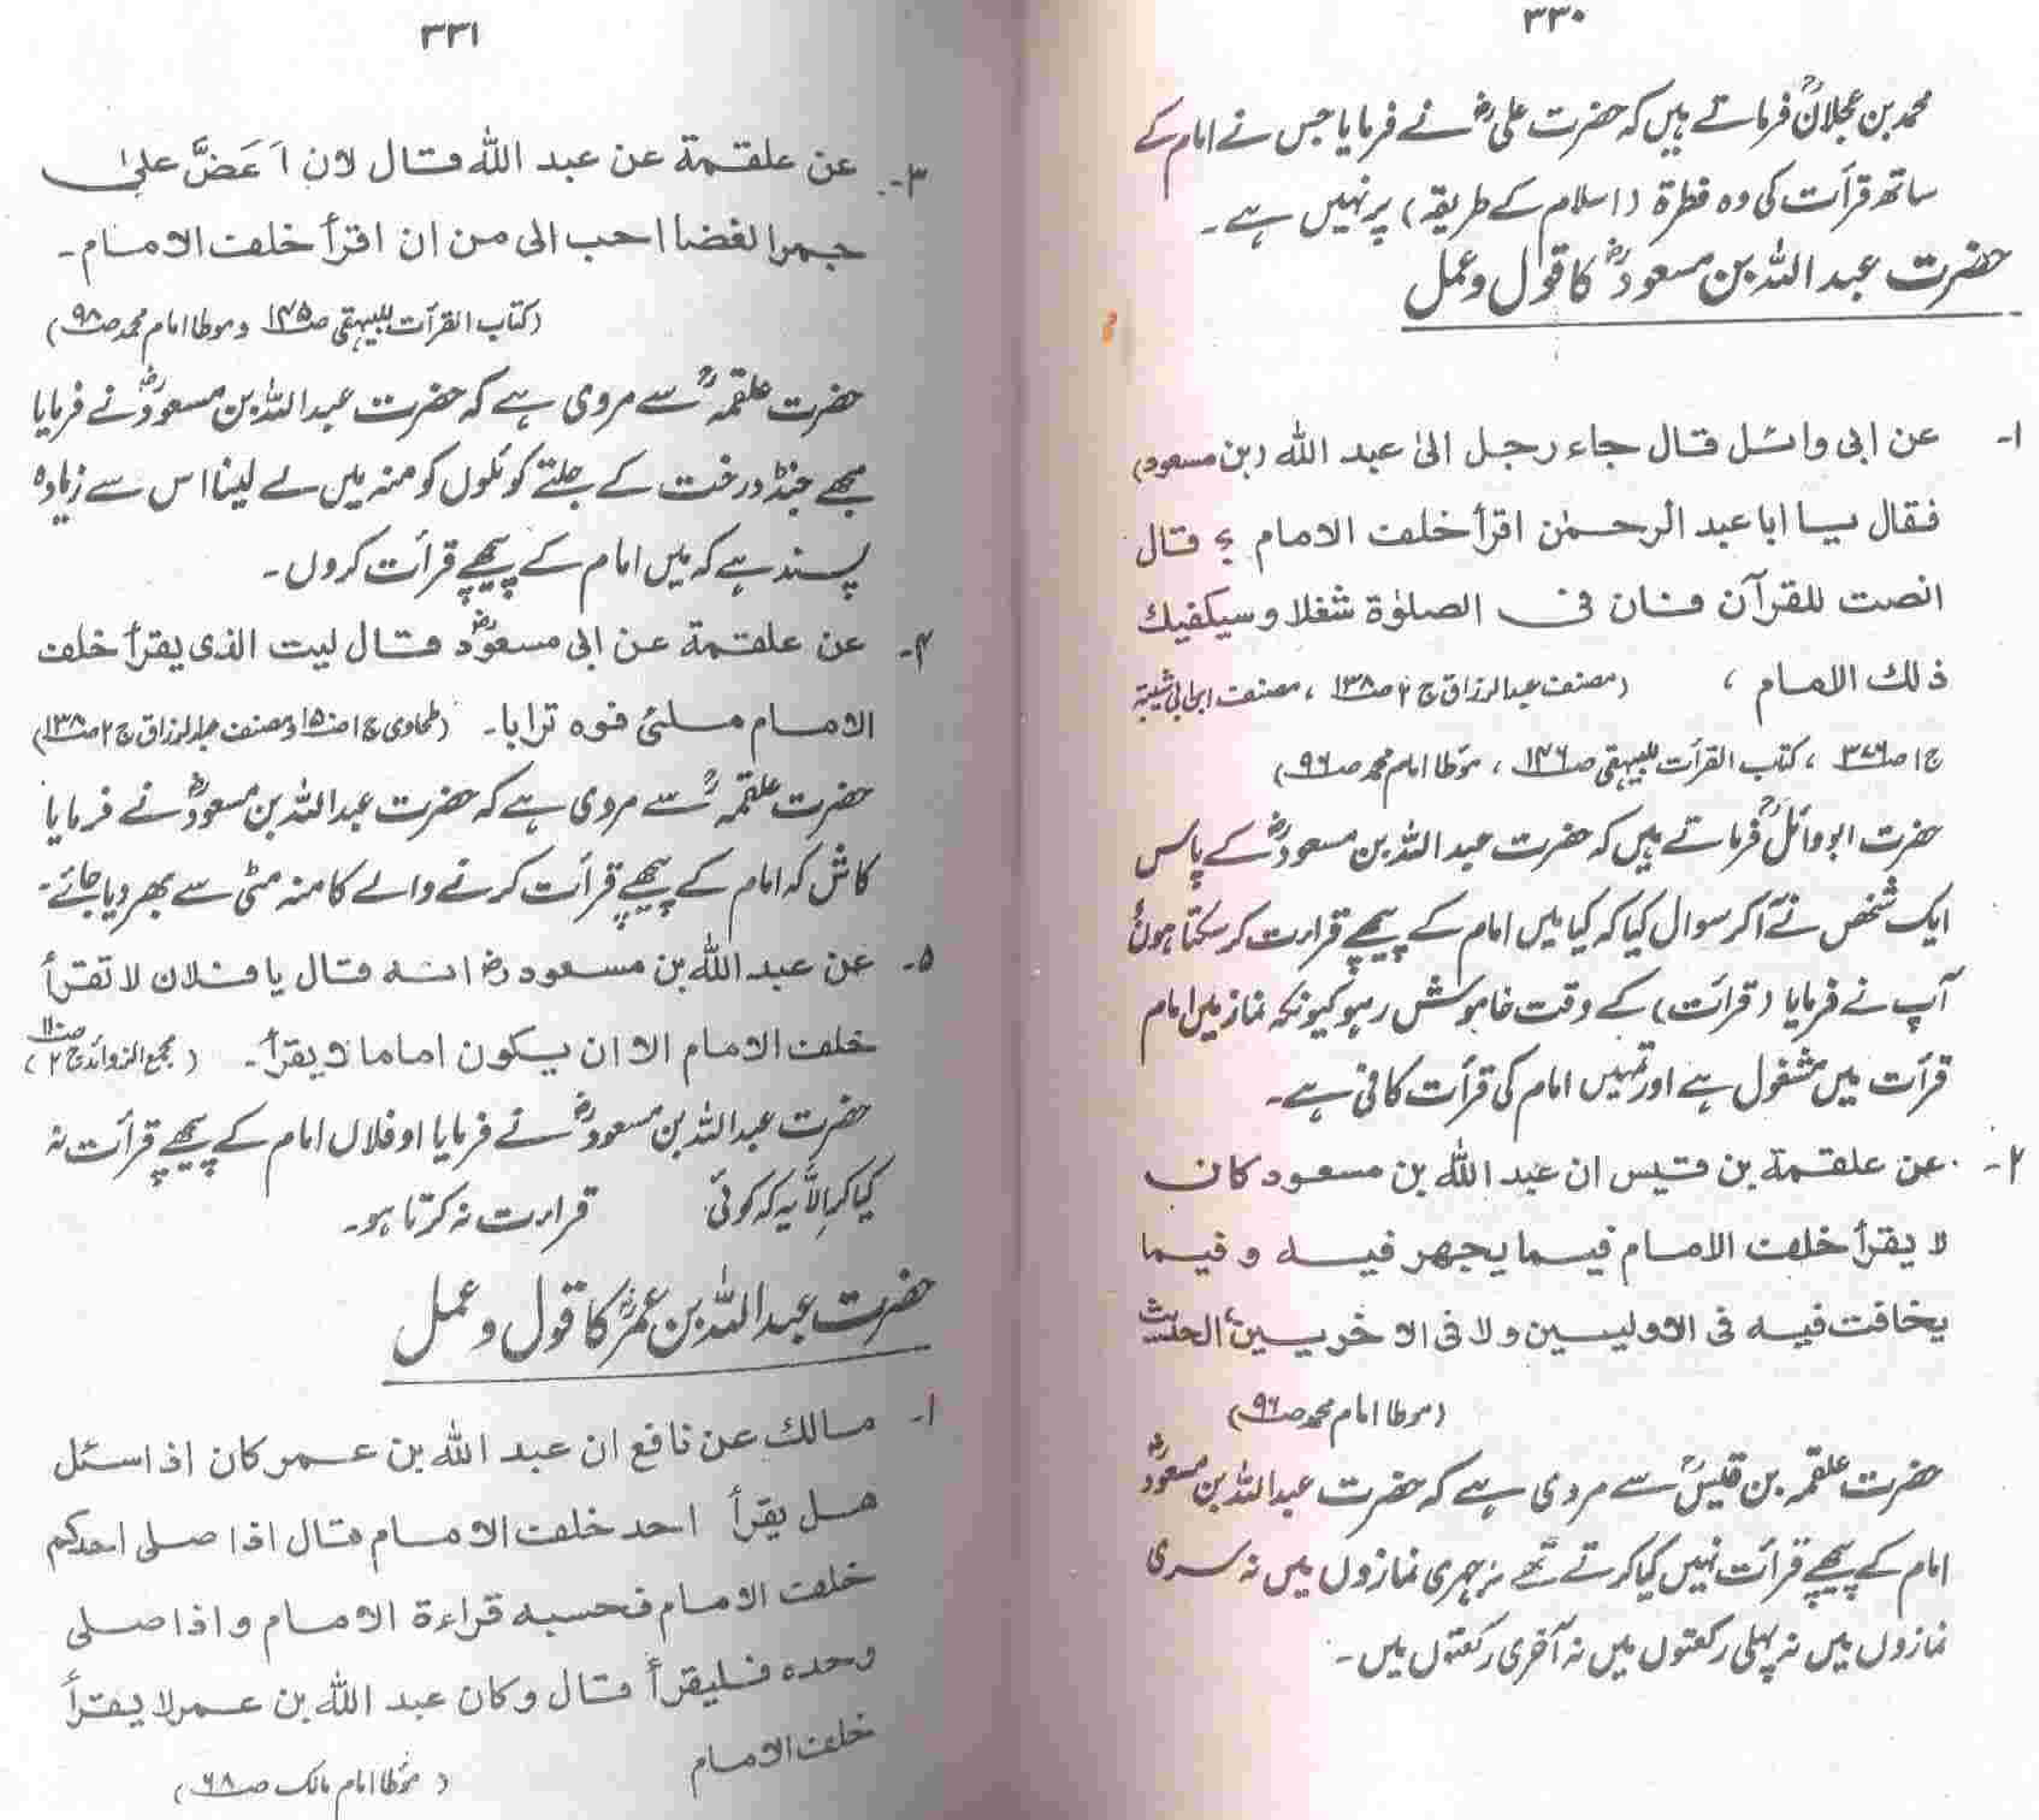 ۳۳۰
محمد بن عجلانؒ فرماتے ہیں کہ حضرت علیؓ نے فرمایا جس نے امام کے
ساتھ قرأت کی وہ فطرۃ (اسلام کے طریقہ) پر نہیں ہے۔
حضرت عبد اللہ بن مسعودؓ کا قول و عمل
۱۔ عن ابی وائل قال جاء رجل الیٰ عبد اللہ (بن مسعود)
فقال یا ابا عبد الرحمٰن اقرأ خلف الامام ؟ قال
انصت للقرآن فان فی الصلوٰۃ شغلا وسیکفیك
ذلك الامام ، (مصنف عبدالرزاق ج ۲ ص۱۳۸ ، مصنف ابن ابی شیبۃ
ج ۱ ص۳۷۶ ، کتاب القرأت للبیہقی ص۱۴۶ ، مؤطا امام محمد ص۹۶)
حضرت ابو وائلؒ فرماتے ہیں کہ حضرت عبد اللہ بن مسعودؓ کے پاس
ایک شخص نے آکر سوال کیا کہ کیا میں امام کے پیچھے قرارت کر سکتا ہوں؟
آپ نے فرمایا (قرائت) کے وقت خاموش رہو کیونکہ نماز میں امام
قرأت میں مشغول ہے اور تمہیں امام کی قرأت کافی ہے۔
۲۔ عن علقمۃ بن قیس ان عبد اللہ بن مسعود کان
لا یقرأ خلف الامام فیما یجهر فیه و فیما
یخافت فیه فی الاولیین ولا فی الاخریین، الحدیث
(موطا امام محمد ص۹۶)
حضرت علقمہ بن قیسؒ سے مروی ہے کہ حضرت عبد اللہ بن مسعودؓ
امام کے پیچھے قرأت نہیں کیا کرتے تھے نہ جہری نمازوں میں نہ سری
نمازوں میں نہ پہلی رکعتوں میں نہ آخری رکعتوں میں۔
۳۳۱
۳۔ عن علقمۃ عن عبد اللہ قال لان اَعَضَّ علیٰ
جمر الغضا احب الی من ان اقرأ خلف الامام۔
(کتاب القرأت للبیہقی ص۱۴۵ و موطا امام محمد ص۹۸)
حضرت علقمہؒ سے مروی ہے کہ حضرت عبد اللہ بن مسعودؓ نے فرمایا
مجھے جنڈ درخت کے جلتے کوئلوں کو منہ میں لے لینا اس سے زیادہ
پسند ہے کہ میں امام کے پیچھے قرأت کروں۔
۴۔ عن علقمۃ عن ابی مسعودؓ قال لیت الذی یقرأ خلف
الامام ملئ فوه ترابا۔ (طحاوی ج ۱ ص۱۵۰ ومصنف عبدالرزاق ج ۲ ص۱۳۸)
حضرت علقمہؒ سے مروی ہے کہ حضرت عبد اللہ بن مسعودؓ نے فرمایا
کاش کہ امام کے پیچھے قرأت کرنے والے کا منہ مٹی سے بھر دیا جائے۔
۵۔ عن عبد اللہ بن مسعودؓ انه قال یا فلان لا تقرأ
خلف الامام الا ان یکون اماما لا یقرأ۔ (مجمع الزوائد ج ۲ ص۱۱۰)
حضرت عبد اللہ بن مسعودؓ نے فرمایا او فلاں امام کے پیچھے قرأت نہ
کیا کر اِلاَّ یہ کہ کوئی قرارت نہ کرتا ہو۔
حضرت عبد اللہ بن عمرؓ کا قول و عمل
۱۔ مالك عن نافع ان عبد اللہ بن عمر کان اذا سئل
هل یقرأ احد خلف الامام قال اذا صلی احدکم
خلف الامام فحسبه قراءۃ الامام واذا صلی
وحدہ فلیقرأ قال وکان عبد اللہ بن عمر لا یقرأ
خلف الامام (مؤطا امام مالک ص۶۸)